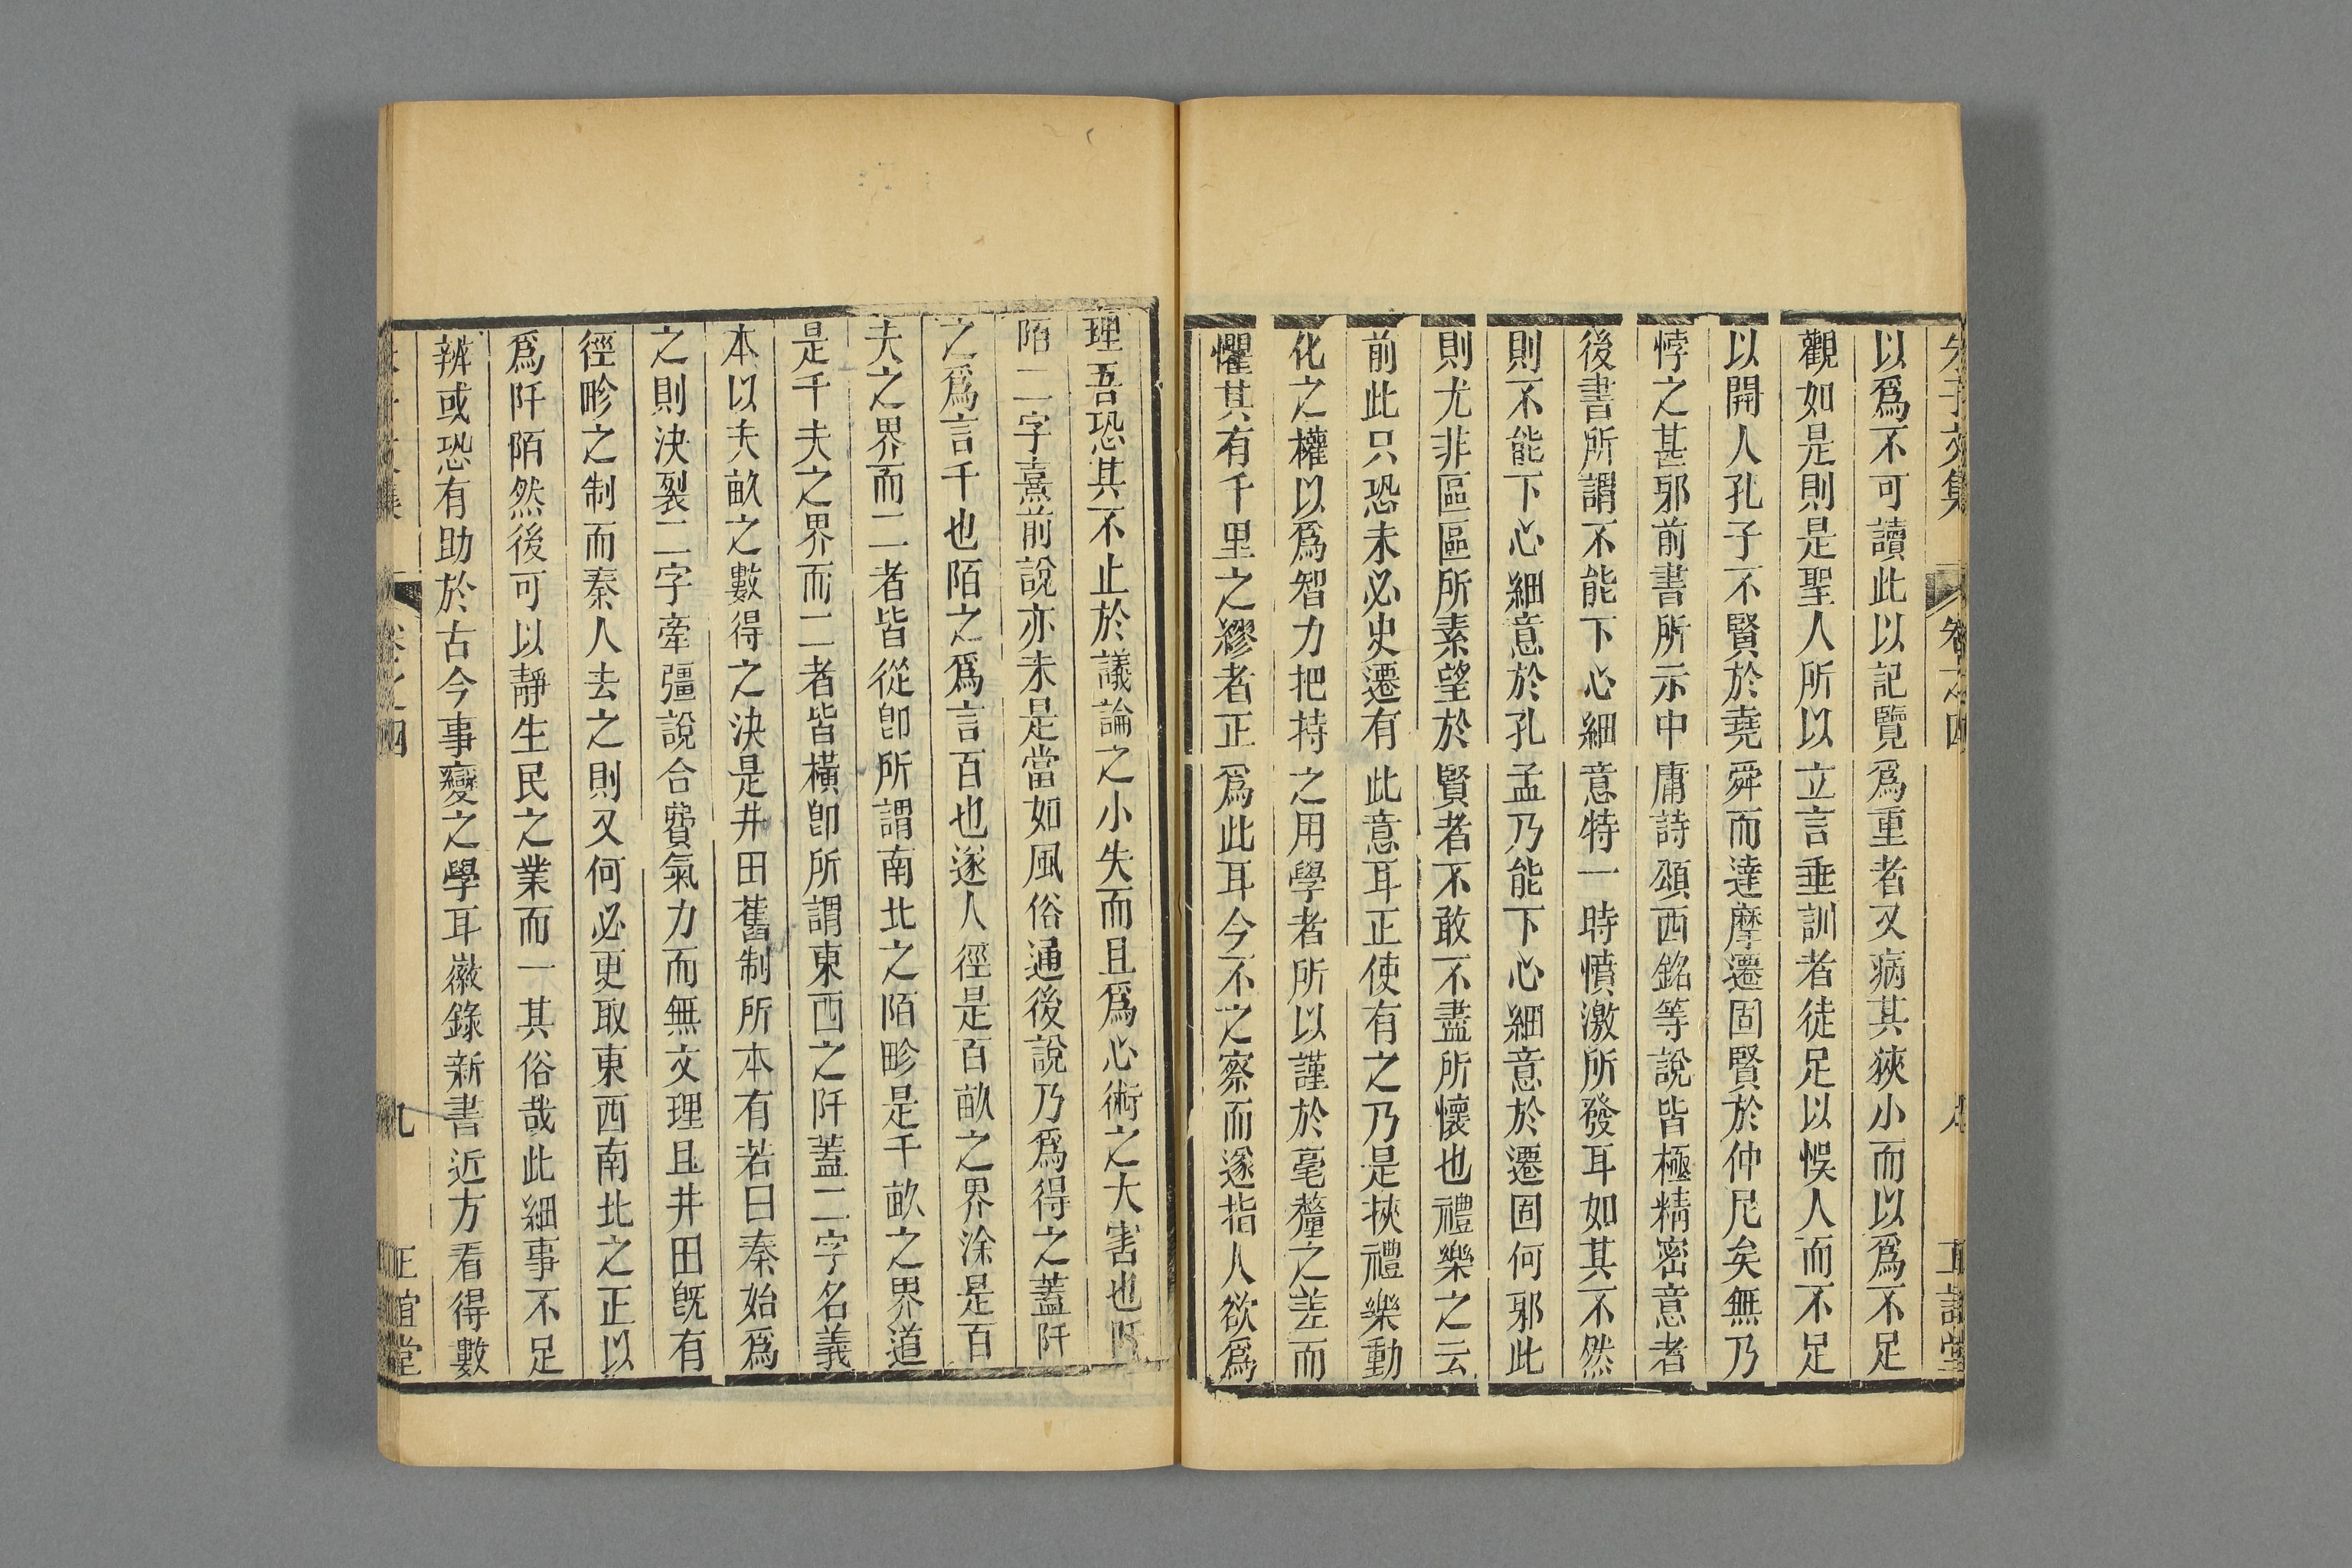 朱子文集 卷之四 正誼堂
以爲不可讀此以記覽爲重者又病其狹小而以爲不足
觀如是則是聖人所以立言垂訓者徒足以悞人而不足
以開人孔子不賢於堯舜而達摩遷固賢於仲尼矣無乃
悖之甚邪前書所示中庸詩頌西銘等說皆極精密意者
後書所謂不能下心細意特一時憤激所發耳如其不然
則不能下心細意於孔孟乃能下心細意於遷固何邪此
則尤非區區所素望於賢者不敢不盡所懷也禮樂之云
前此只恐未必史遷有此意耳正使有之乃是挾禮樂動
化之權以爲智力把持之用學者所以謹於毫釐之差而
懼其有千里之繆者正爲此耳今不之察而遂指人欲爲
理吾恐其不止於議論之小失而且爲心術之大害也阡
陌二字熹前說亦未是當如風俗通後說乃爲得之蓋阡
之爲言千也陌之爲言百也遂人徑是百畝之界涂是百
夫之界而二者皆從卽所謂南北之陌畛是千畝之界道
是千夫之界而二者皆橫卽所謂東西之阡蓋二字名義
本以夫畝之數得之決是井田舊制所本有若曰秦始爲
之則決裂二字牽彊說合費氣力而無文理且井田旣有
徑畛之制而秦人去之則又何必更取東西南北之正以
爲阡陌然後可以靜生民之業而一其俗哉此細事不足
辨或恐有助於古今事變之學耳徽錄新書近方看得數
卷之四 九 正誼堂